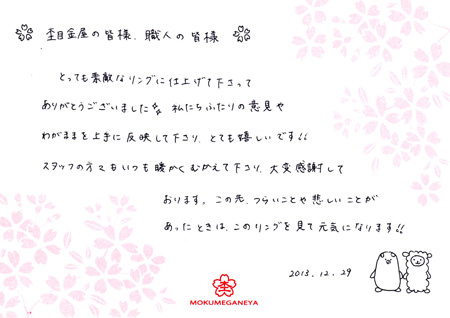 杢目金屋の皆様、職人の皆様
とっても素敵なリングに仕上げて下さって
ありがとうございました 私たちふたりの意見や
わがままを上手に反映して下さり、とても嬉しいです!!
スタッフの方々もいつも暖かくむかえて下さり、大変感謝して
おります。この先、つらいことや悲しいことが
あったときは、このリングを見て元気になります!!
2013.12.29
杢
MOKUMEGANEYA